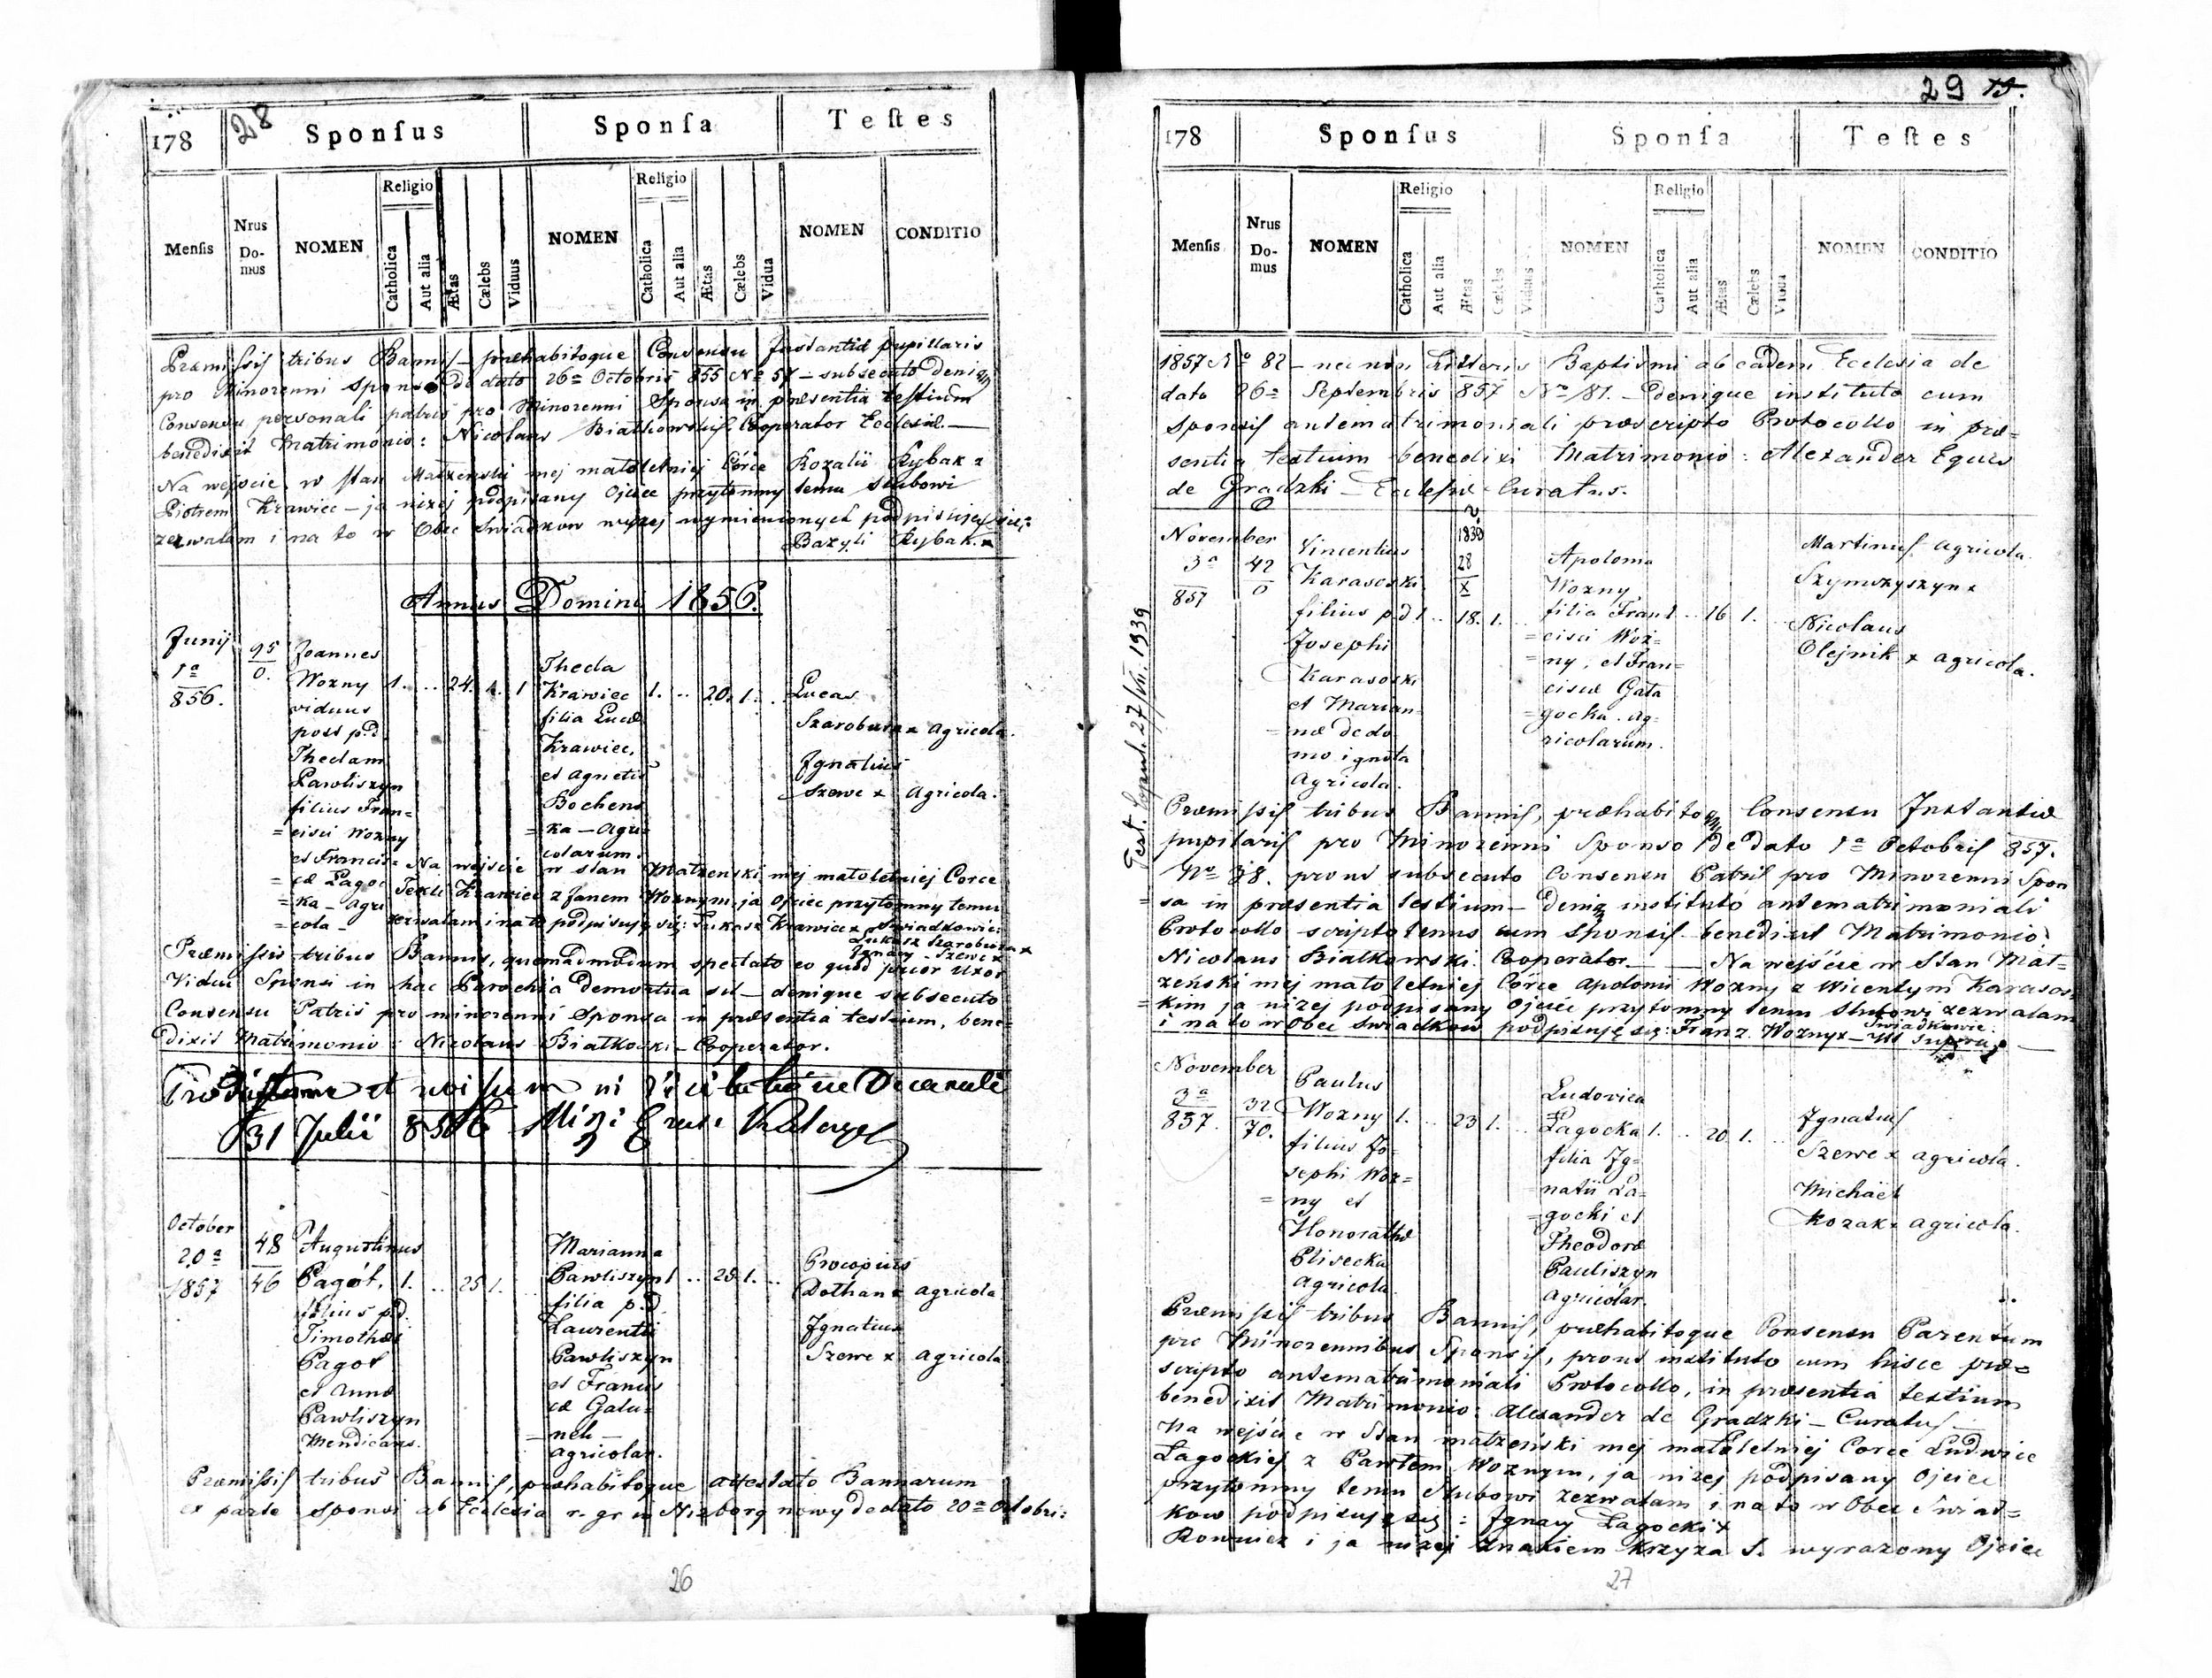 178 28 Sponſus Sponſa Teſtes
Menſis Nrus Do-mus NOMEN Religio Catholica Aut alia Ætas Cælebs Viduus NOMEN Religio Catholica Aut alia Ætas Cælebs Vidua NOMEN CONDITIO
Præmissis tribus Bannis – præhabitoque Consensu Instantiæ pupillaris
pro Minorenni Sponso de dato 26ª Octobris 855 Nº 57 – subsecuto Deniq
Consensu personali patris pro Minorenni Sponsa in præsentia testium
benedixit Matrimonio: Nicolaus Białkowski Cooperator Ecclesiæ. —
Na wejście w stan Małżenski mej małoletniej Córce Rozalii Rybak z
Piotrem Krawiec – ja niżej podpisany Ojciec przytomny temu Slubowi
zezwalam i na to w Obec Swiadkow wyżej wymienionych podpisuję się:
Bazyli Rybak. x
Annus Domini 1856.
Junij
1ª
856.
95
0.
Joannes
Wozny 1. .. 24. 1. 1
viduus
post p.d.
Theclam
Pawliszyn
filius Fran=
=cisci Wozny
et Francis=
=cæ Łagoc
=ka – Agri
=cola –
Thecla
Krawiec 1. .. 20. 1. .
filia Lucæ
Krawiec,
et Agnetis
Bochens
=ka – Agri
colarum.
Lucas
Szarobura x Agricola.
Ignatius
Szewc x Agricola.
Na wejście w stan Małzenski mej małoletniej Corce
Tekli Krawiec z Janem Woznym ja Ojciec przytomny temu
zezwalam i na to podpisuję się: Łukasz Krawiec x Swiadkowie:
Łukasz Szarobura x
Ignacy Szewc x
Præmissis tribus Bannis, quemadmodum spectato eo quod prior Uxor
Vidui Sponsi in hac Parochia demortua sit – denique subsecuto
Consensu Patris pro minorenni Sponsa in præsentia testium, bene=
dixit Matrimonio: Nicolaus Białkowski – Cooperator.
31 Julii 856
October
20ª
1857
48
46
Augustinus
Pagót, 1. .. 25 1.
filius p.d.
Timothæi
Pagot
et Annæ
Pawliszyn
Mendicans.
Marianna
Pawliszyn 1 .. 25. 1. ..
filia p.d.
Laurentii
Pawliszyn
et Francis
cæ Galu=
=neh –
Agricolar.
Procopius
Dothan x Agricola
Ignatius
Szewc x Agricola
Præmissis tribus Bannis, præhabitoque Attestato Bannarum
ex parte sponsi ab Ecclesia r. gr. in Nizborg nowy de dato 20ª Octobri:
26
29
178 Sponſus Sponſa Teſtes
Menſis Nrus Do-mus NOMEN Religio Catholica Aut alia Ætas Cælebs Viduus NOMEN Religio Catholica Aut alia Ætas Cælebs Vidua NOMEN CONDITIO
1857 Nº 82 – nec non Litteris Baptismi ab eadem Ecclesia de
dato 26ª Septembris 857 Nº 81. – denique instituto cum
Sponsis antematrimoniali præscripto Protocollo in præ=
sentia testium benedixi Matrimonio: Alexander Eques
de Gradzki – Ecclesiæ Curatus.
November
3ª
857
42
0
Vincentius
Karasoski
filius p.d 1 .. 18. 1.
Josephi
Karasoski
et Marian=
=næ de do
mo ignota
Agricola.
1839
28
X
Apolonia
Wozny
filia Fran 1 .. 16 1.
=cisci Woz=
=ny, et Fran=
cisæ Gała
=gocka. Ag=
ricolarum.
Martinus Agricola.
Szymszyszyn x
Nicolaus
Olejnik x Agricola.
Test. Copul. 27/VII. 1939
Præmissis tribus Bannis, præhabitoq Consensu Instantiæ
pupilaris pro Minorenni Sponso de dato 1ª Octobris 857.
Nº 38. prout subsecuto Consensu Patris pro Minorenni Spon
=sa in præsentia testium – deniq instituto antematrimoniali
Protocollo scripto tenus cum Sponsis – benedixit Matrimonio:
Nicolaus Białkowski. Cooperator — — Na wejście w Stan Mał=
żeński mej małoletniej Córce Apolonii Wozny z Wicentym Karasos=
=kim ja niżej podpisany Ojciec przytomny temu Slubowi zezwalam
i na to w Obec Swiadkow podpisuję się: Franz. Wozny x – Swiadkowie: Ut Supra
November
3ª
857.
32
70.
Paulus
Wozny 1. .. 23 1. ..
filius Jo=
sephi Woz=
=ny et
Honorathæ
Plisecka
Agricola.
Ludovica
Łagocka 1. .. 20 1. ..
filia Ig=
natii Ła=
=gocki et
Theodoræ
Pauliszyn
Agricolar.
Ignatius
Szewc x Agricola.
Michaël
Kozak x Agricola.
Præmissis tribus Bannis, præhabitoque Consensu Parentum
pro Minorennibus Sponsis, prout instituto cum hisce præ=
scripto antematrimoniali Protocollo, in præsentia testium
benedixit Matrimonio: Alexander de Gradzki – Curatus –
Na wejście w Stan małżeński mej małoletniej Corce Ludwice
Łagockiej z Pawłem Woznym, ja niżej podpisany Ojciec
przytomny temu Slubowi zezwalam i na to w Obec Swiad=
kow podpisuję się: Ignacy Łagocki x
Rownież i ja niżej znakiem Krzyża S. wyrazony Ojciec
27